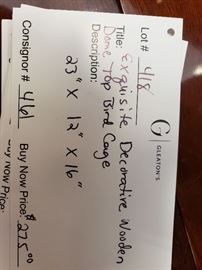 G
GLEATON'S
Lot # 418
Title: Exquisite Decorative Wooden
Dome Top Bird Cage
Description:
23" X 12" X 16"
Consignor # 461 Buy Now Price: $275.00
Buy Now Price: